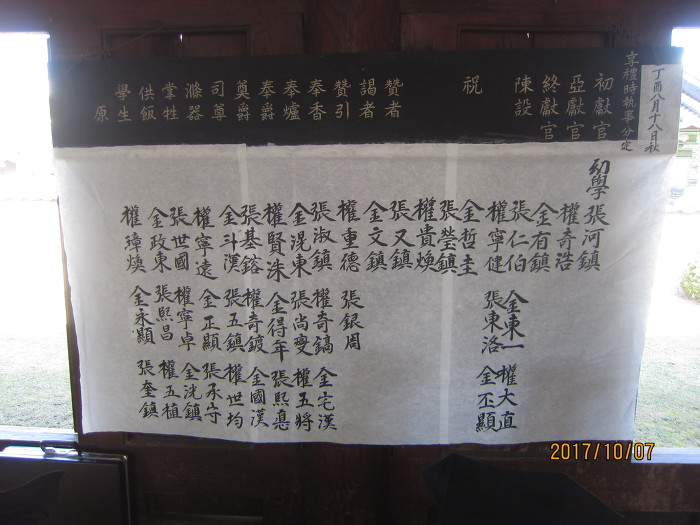 丁酉八月十八日秋
享禮時執事分定
初獻官
亞獻官
終獻官
陳設
祝
贊者
謁者
贊引
奉香
奉爐
奉爵
奠爵
司尊
滌器
掌牲
供飯
學生
原
幼學 張河鎮
權奇浩
金有鎮
張仁伯 金東一 權大直
權寧健 張東洛 金丕顯
金哲圭
張瑩鎮
權貴煥
張又鎮
金文鎮
權重德 張銀周
張淑鎮 權奇鎬 金宅漢
金滉東 張尚燮 權五將
權賢洙 金得年 張熙悳
張基鎔 權奇鍍 金國漢
金斗漢 張五鎮 權世均
權寧遠 金正顯 張承守
張世國 權寧卓 金洸鎮
金政東 張熙昌 權五植
權璋煥 金永顯 張奎鎮
2017/10/07